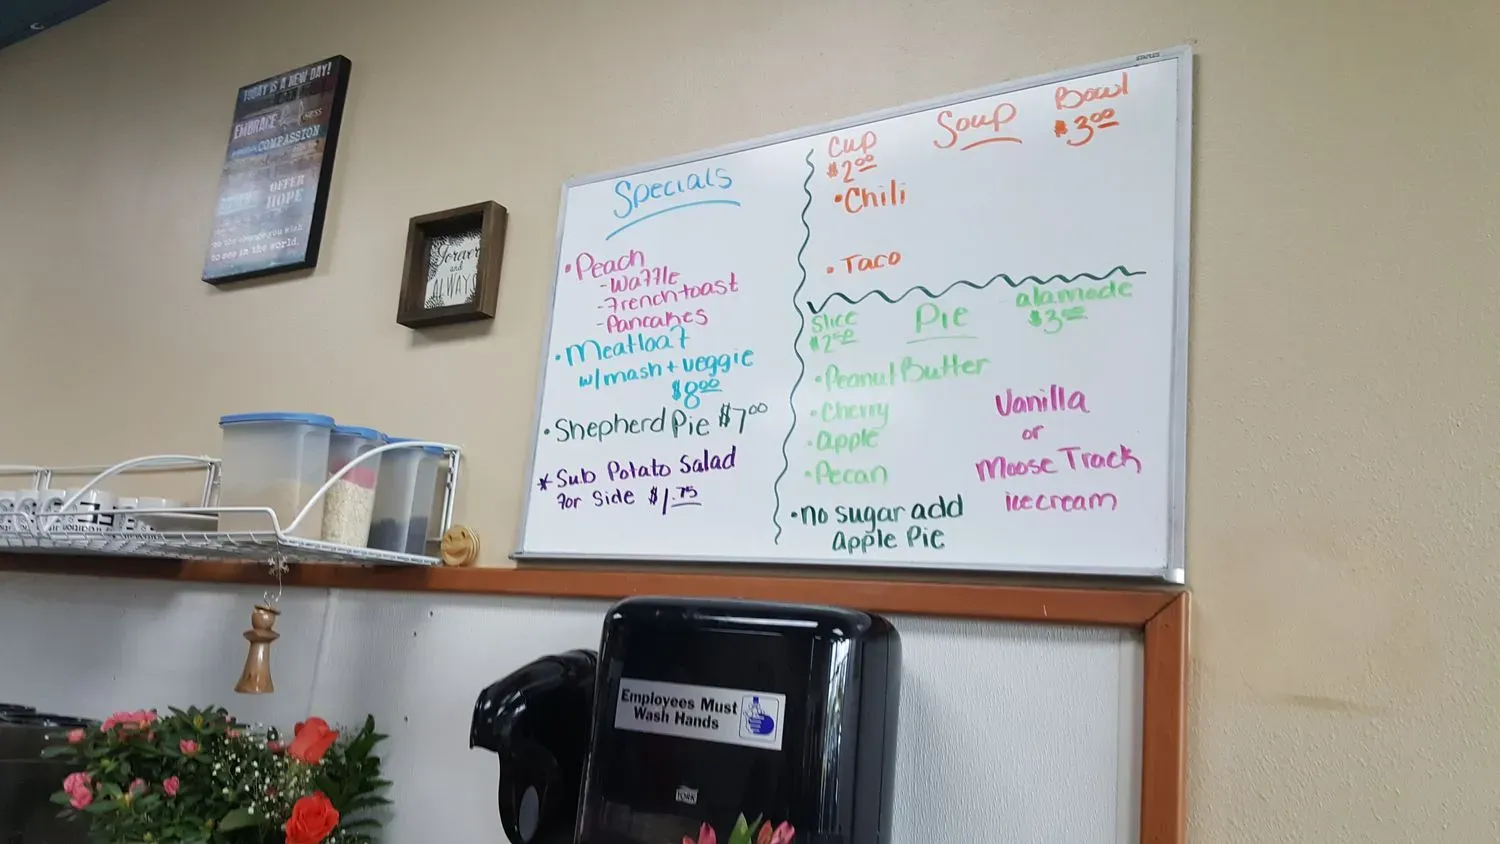 TODAY IS A NEW DAY!
EMBRACE
COMPASSION
OFFER
HOPE
you wish
to see in the world.
Forever
and
ALWAYS
STAPLES
Specials
• Peach
- Waffle
- French toast
- Pancakes
• Meatloaf
w/ mash + veggie
$8.00
• Shepherd Pie $7.00
* Sub Potato Salad
for Side $1.75
Soup
Cup
$2.00
Bowl
$3.00
• Chili
• Taco
Pie
Slice
$2.50
alamode
$3.50
• Peanut Butter
• Cherry
• apple
• Pecan
• no sugar add
apple Pie
Vanilla
or
Moose Track
ice cream
Employees Must
Wash Hands
TORK